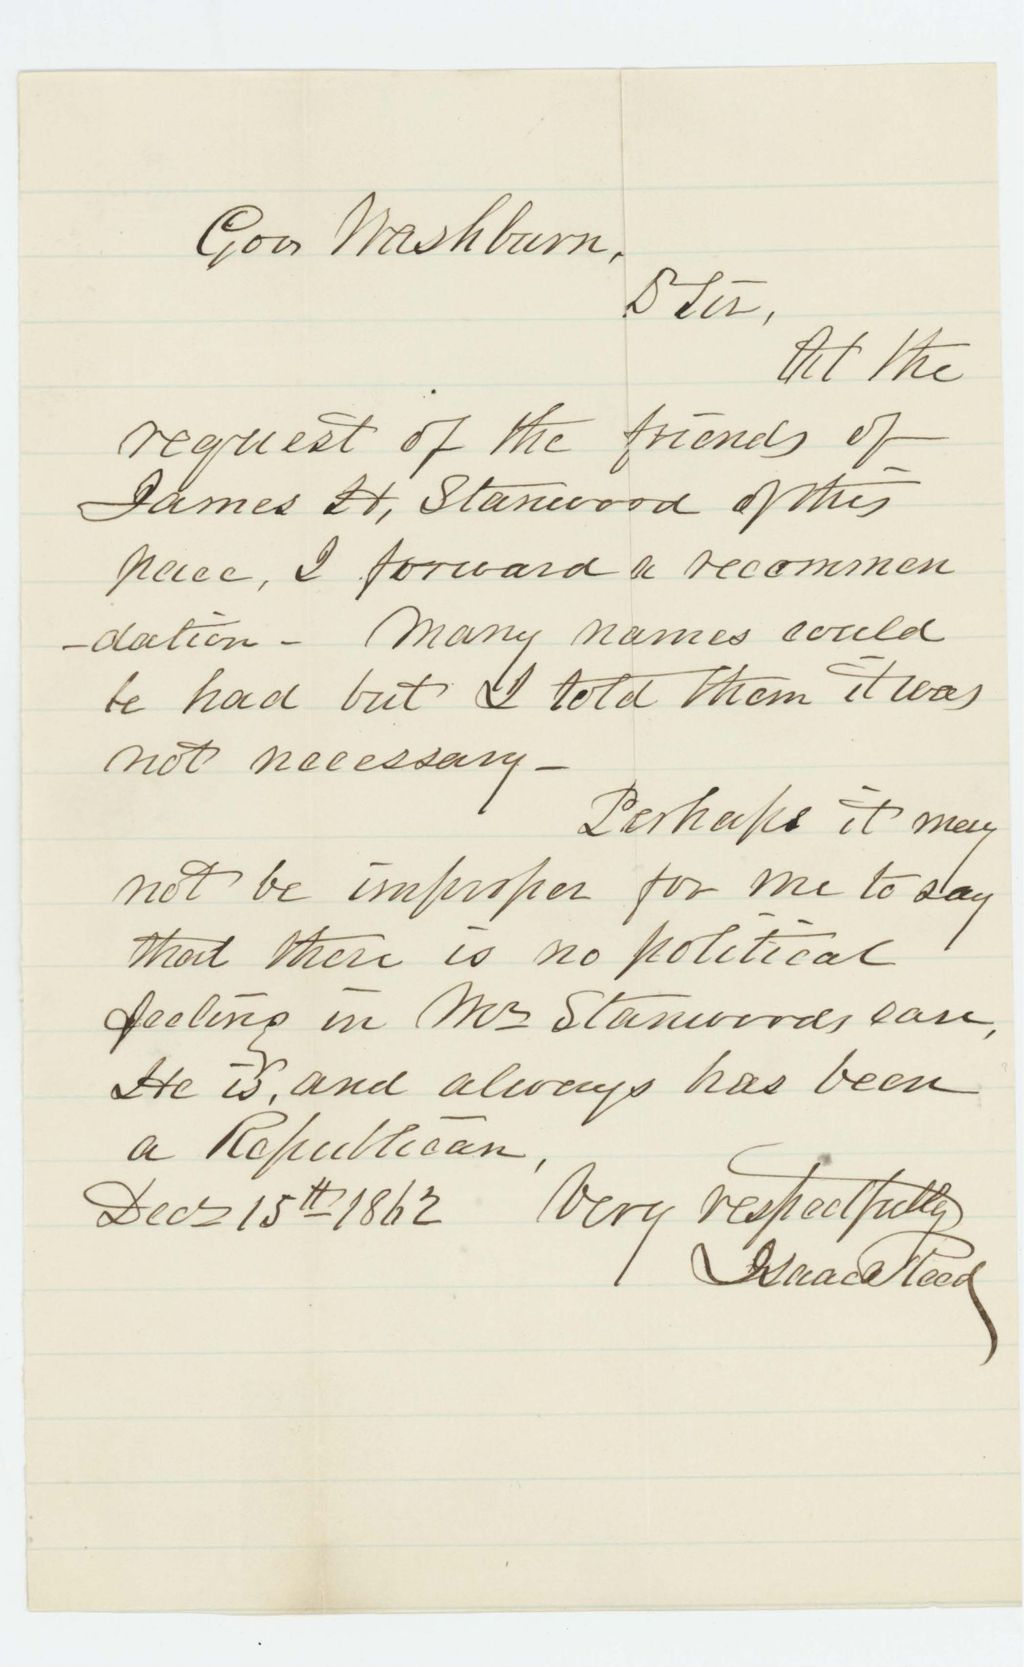 Govr Washburn,
D Sir,
At the
request of the friends of
James H, Stanwood of this
place, I forward a recommen
-dation - Many names could
be had but I told them it was
not necessary -
Perhaps it may
not be improper for me to say
that there is no political
feeling in Mr Stanwoods case,
He is, and always has been
a Republican,
Decr 15th 1862 Very respectfully
Isaac Reed